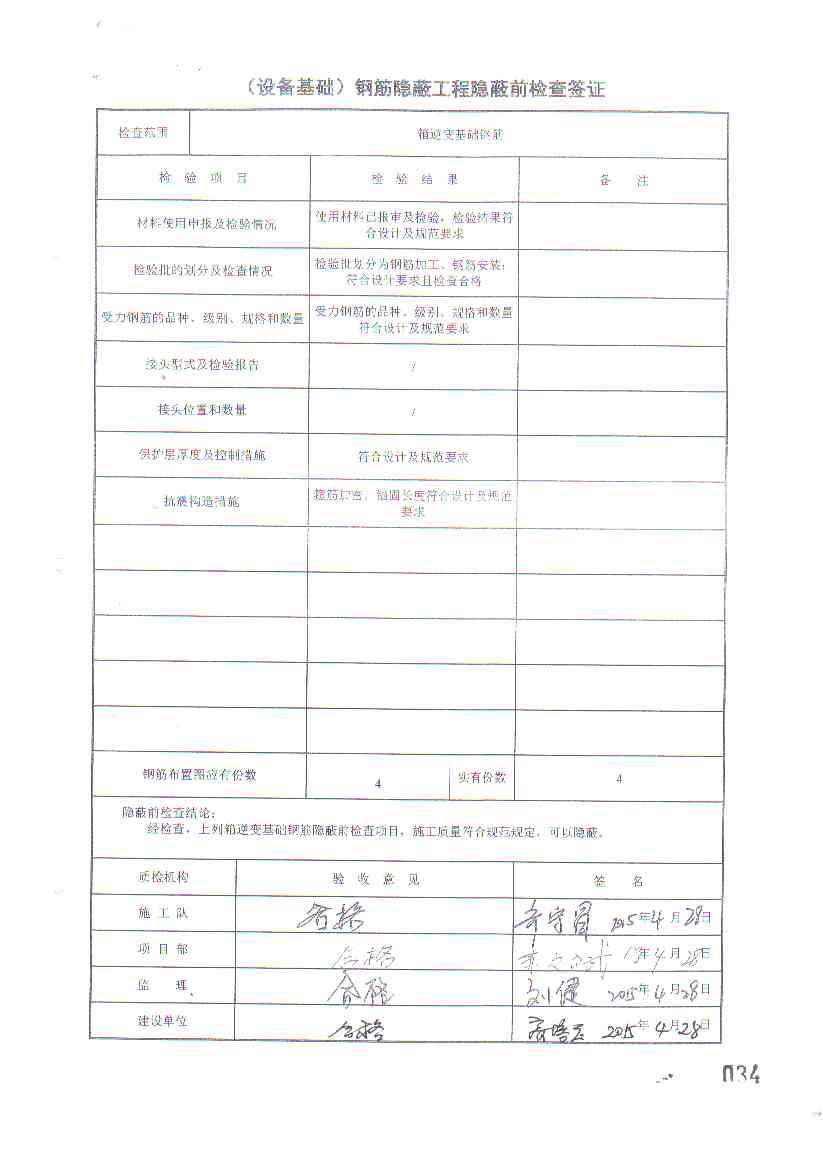 （设备基础）钢筋隐蔽工程隐蔽前检查签证
检查范围 箱逆变基础钢筋
检 验 项 目 检 验 结 果 备 注
材料使用申报及检验情况 使用材料已报审及检验，检验结果符
合设计及规范要求
检验批的划分及检查情况 检验批划分为钢筋加工、钢筋安装；
符合设计要求且检查合格
受力钢筋的品种、级别、规格和数量 受力钢筋的品种、级别、规格和数量
符合设计及规范要求
接头型式及检验报告 /
接头位置和数量 /
保护层厚度及控制措施 符合设计及规范要求
抗震构造措施 箍筋加密，锚固长度符合设计及规范
要求
钢筋布置图应有份数 4 实有份数 4
隐蔽前检查结论：
经检查，上列箱逆变基础钢筋隐蔽前检查项目，施工质量符合规范规定，可以隐蔽。
质检机构 验 收 意 见 签 名
施 工 队 合格 2015年4月28日
项 目 部 合格 15年4月28日
监 理 合格 刘健 2015年4月28日
建设单位 合格 2015年4月28日
034